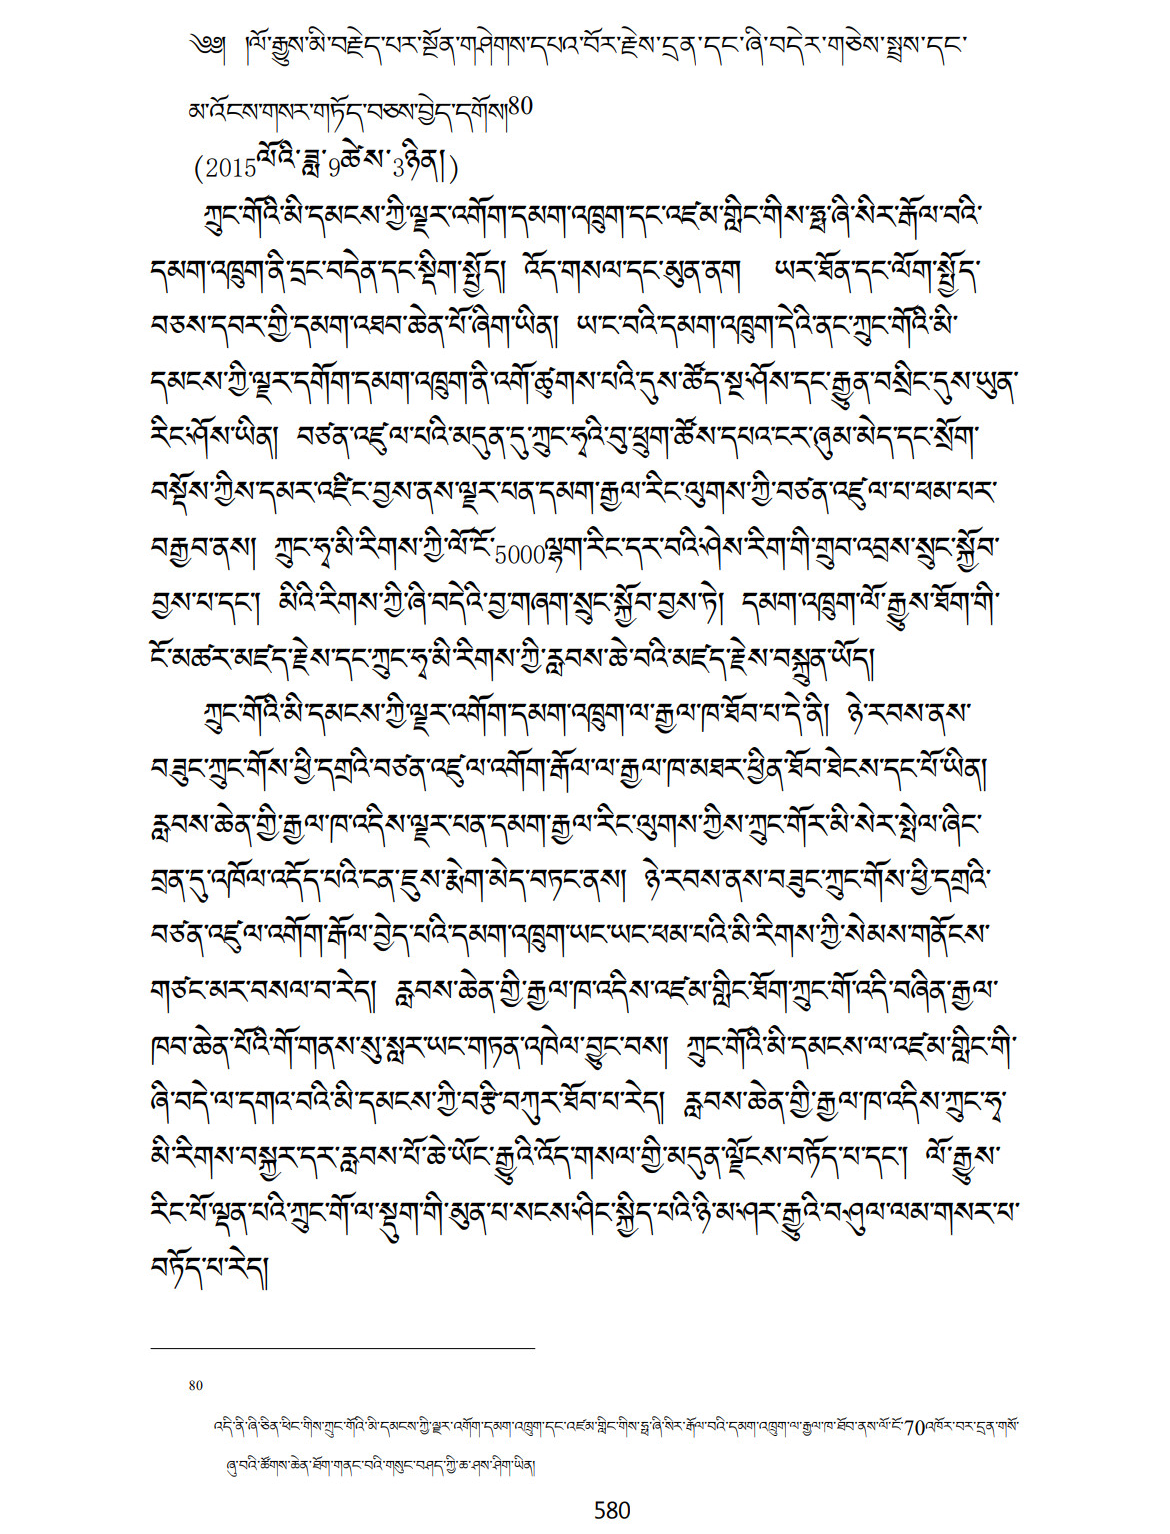 ༄༅། །ལོ་རྒྱུས་མི་བརྗེད་པར་སྔོན་གཤེགས་དཔའ་བོར་རྗེས་དྲན་དང་ཞི་བདེར་གཅེས་སྤྲས་དང་
མ་འོངས་གསར་གཏོད་བཅས་བྱེད་དགོས།80
(2015ལོའི་ཟླ་9ཚེས་3ཉིན།)
ཀྲུང་གོའི་མི་དམངས་ཀྱི་ལྗར་འགོག་དམག་འཁྲུག་དང་འཛམ་གླིང་གིས་ཧྥ་ཞི་སིར་རྒོལ་བའི་
དམག་འཁྲུག་ནི་དྲང་བདེན་དང་སྡིག་སྤྱོད། འོད་གསལ་དང་མུན་ནག ཡར་ཐོན་དང་ལོག་སྤྱོད་
བཅས་དབར་གྱི་དམག་འཐབ་ཆེན་པོ་ཞིག་ཡིན། ཡ་ང་བའི་དམག་འཁྲུག་དེའི་ནང་ཀྲུང་གོའི་མི་
དམངས་ཀྱི་ལྗར་དགོག་དམག་འཁྲུག་ནི་འགོ་ཚུགས་པའི་དུས་ཚོད་སྔ་ཤོས་དང་རྒྱུན་བསྲིང་དུས་ཡུན་
རིང་ཤོས་ཡིན། བཙན་འཛུལ་པའི་མདུན་དུ་ཀྲུང་ཧྭའི་བུ་ཕྲུག་ཚོས་དཔའ་ངར་ཞུམ་མེད་དང་སྲོག་
བསྡོས་ཀྱིས་དམར་འཛིང་བྱས་ནས་ལྗར་པན་དམག་རྒྱལ་རིང་ལུགས་ཀྱི་བཙན་འཛུལ་པ་ཕམ་པར་
བརྒྱབ་ནས། ཀྲུང་ཧྭ་མི་རིགས་ཀྱི་ལོ་ངོ་5000ལྷག་རིང་དར་བའི་ཤེས་རིག་གི་གྲུབ་འབྲས་སྲུང་སྐྱོབ་
བྱས་པ་དང་། མིའི་རིགས་ཀྱི་ཞི་བདེའི་བྱ་གཞག་སྲུང་སྐྱོབ་བྱས་ཏེ། དམག་འཁྲུག་ལོ་རྒྱུས་ཐོག་གི་
ངོ་མཚར་མཛད་རྗེས་དང་ཀྲུང་ཧྭ་མི་རིགས་ཀྱི་རླབས་ཆེ་བའི་མཛད་རྗེས་བསྐྲུན་ཡོད།
ཀྲུང་གོའི་མི་དམངས་ཀྱི་ལྗར་འགོག་དམག་འཁྲུག་ལ་རྒྱལ་ཁ་ཐོབ་པ་དེ་ནི། ཉེ་རབས་ནས་
བཟུང་ཀྲུང་གོས་ཕྱི་དགྲའི་བཙན་འཛུལ་འགོག་རྒོལ་ལ་རྒྱལ་ཁ་མཐར་ཕྱིན་ཐོབ་ཐེངས་དང་པོ་ཡིན།
རླབས་ཆེན་གྱི་རྒྱལ་ཁ་འདིས་ལྗར་པན་དམག་རྒྱལ་རིང་ལུགས་ཀྱིས་ཀྲུང་གོར་མི་སེར་སྤེལ་ཞིང་
བྲན་དུ་འཁོལ་འདོད་པའི་ངན་ཇུས་རྨེག་མེད་བཏང་ནས། ཉེ་རབས་ནས་བཟུང་ཀྲུང་གོས་ཕྱི་དགྲའི་
བཙན་འཛུལ་འགོག་རྒོལ་བྱེད་པའི་དམག་འཁྲུག་ཡང་ཡང་ཕམ་པའི་མི་རིགས་ཀྱི་སེམས་གནོངས་
གཙང་མར་བསལ་བ་རེད། རླབས་ཆེན་གྱི་རྒྱལ་ཁ་འདིས་འཛམ་གླིང་ཐོག་ཀྲུང་གོ་འདི་བཞིན་རྒྱལ་
ཁབ་ཆེན་པོའི་གོ་གནས་སུ་སླར་ཡང་གཏན་འཁེལ་བྱུང་བས། ཀྲུང་གོའི་མི་དམངས་ལ་འཛམ་གླིང་གི་
ཞི་བདེ་ལ་དགའ་བའི་མི་དམངས་ཀྱི་བརྩི་བཀུར་ཐོབ་པ་རེད། རླབས་ཆེན་གྱི་རྒྱལ་ཁ་འདིས་ཀྲུང་ཧྭ་
མི་རིགས་བསྐྱར་དར་རླབས་པོ་ཆེ་ཡོང་རྒྱུའི་འོད་གསལ་གྱི་མདུན་ལྗོངས་བཏོད་པ་དང་། ལོ་རྒྱུས་
རིང་པོ་ལྡན་པའི་ཀྲུང་གོ་ལ་སྡུག་གི་མུན་པ་སངས་ཤིང་སྐྱིད་པའི་ཉི་མ་ཤར་རྒྱུའི་བཤུལ་ལམ་གསར་པ་
བཏོད་པ་རེད།
80
འདི་ནི་ཞི་ཅིན་ཕིང་གིས་ཀྲུང་གོའི་མི་དམངས་ཀྱི་ལྗར་འགོག་དམག་འཁྲུག་དང་འཛམ་གླིང་གིས་ཧྥ་ཞི་སིར་རྒོལ་བའི་དམག་འཁྲུག་ལ་རྒྱལ་ཁ་ཐོབ་ནས་ལོ་ངོ་70འཁོར་བར་དྲན་གསོ་
ཞུ་བའི་ཚོགས་ཆེན་ཐོག་གནང་བའི་གསུང་བཤད་ཀྱི་ཆ་ཤས་ཤིག་ཡིན།
580